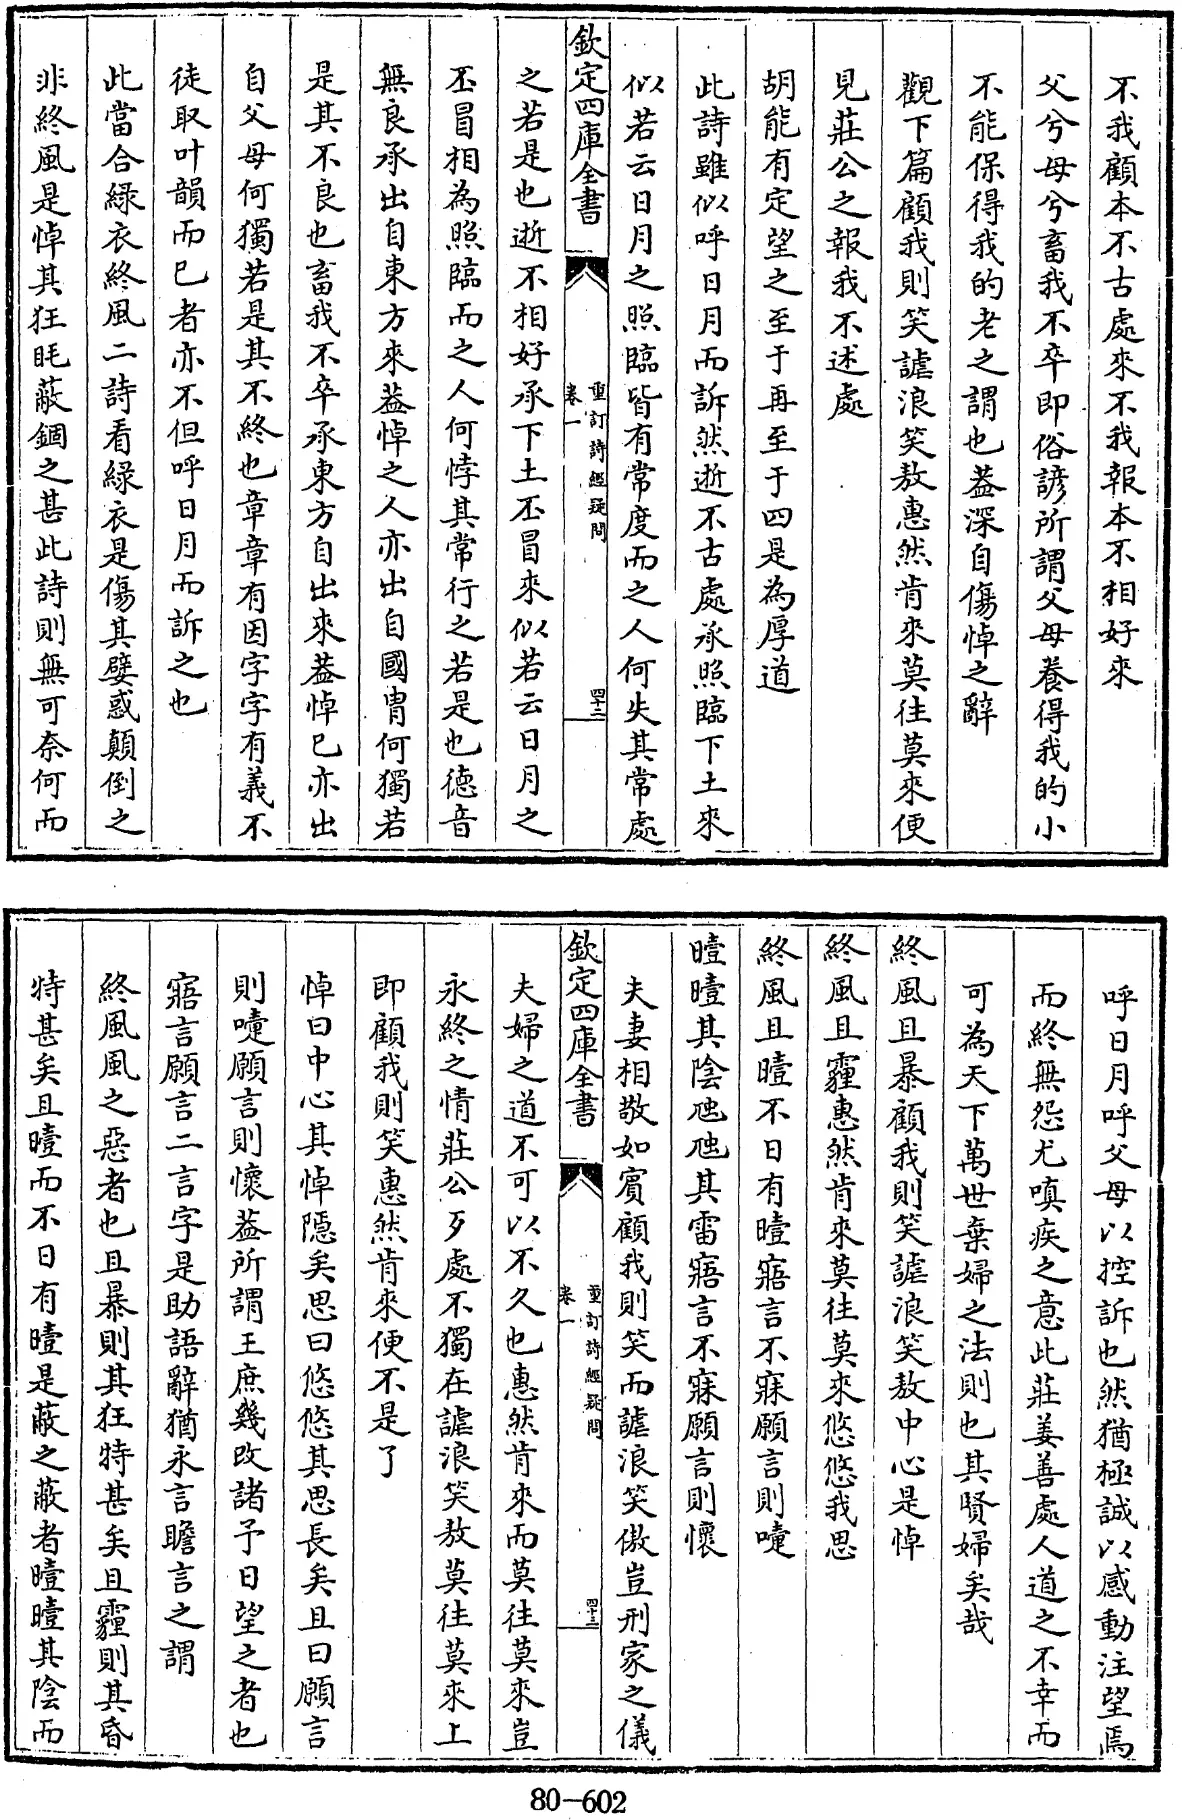 不我顧本不古處來不我報本不相好來
父兮母兮畜我不卒即俗諺所謂父母養得我的小
不能保得我的老之謂也葢深自傷悼之辭
觀下篇顧我則笑謔浪笑敖惠然肯來莫往莫來便
見莊公之報我不述處
胡能有定望之至于再至于四是為厚道
此詩雖似呼日月而訴然逝不古處承照臨下土來
似若云日月之照臨皆有常度而之人何失其常處
欽定四庫全書
重訂詩經疑問
卷一
四十二
之若是也逝不相好承下土丕冒來似若云日月之
丕冒相為照臨而之人何悖其常行之若是也德音
無良承出自東方來葢悼之人亦出自國胄何獨若
是其不良也畜我不卒承東方自出來葢悼已亦出
自父母何獨若是其不終也章章有因字字有義不
徒取叶韻而已者亦不但呼日月而訴之也
此當合綠衣終風二詩看綠衣是傷其嬖惑顛倒之
非終風是悼其狂眊蔽錮之甚此詩則無可奈何而
呼日月呼父母以控訴也然猶極誠以感動注望焉
而終無怨尤嗔疾之意此莊姜善處人道之不幸而
可為天下萬世棄婦之法則也其賢婦矣哉
終風且暴顧我則笑謔浪笑敖中心是悼
終風且霾惠然肯來莫往莫來悠悠我思
終風且曀不日有曀寤言不寐願言則嚏
曀曀其陰虺虺其雷寤言不寐願言則懷
夫妻相敬如賓顧我則笑而謔浪笑傲豈刑家之儀
欽定四庫全書
重訂詩經疑問
卷一
四十三
夫婦之道不可以不久也惠然肯來而莫往莫來豈
永終之情莊公歹處不獨在謔浪笑敖莫往莫來上
即顧我則笑惠然肯來便不是了
悼曰中心其悼隱矣思曰悠悠其思長矣且曰願言
則嚏願言則懷葢所謂王庶幾改諸予日望之者也
寤言願言二言字是助語辭猶永言瞻言之謂
終風風之惡者也且暴則其狂特甚矣且霾則其昏
特甚矣且曀而不日有曀是蔽之蔽者曀曀其陰而
80-602